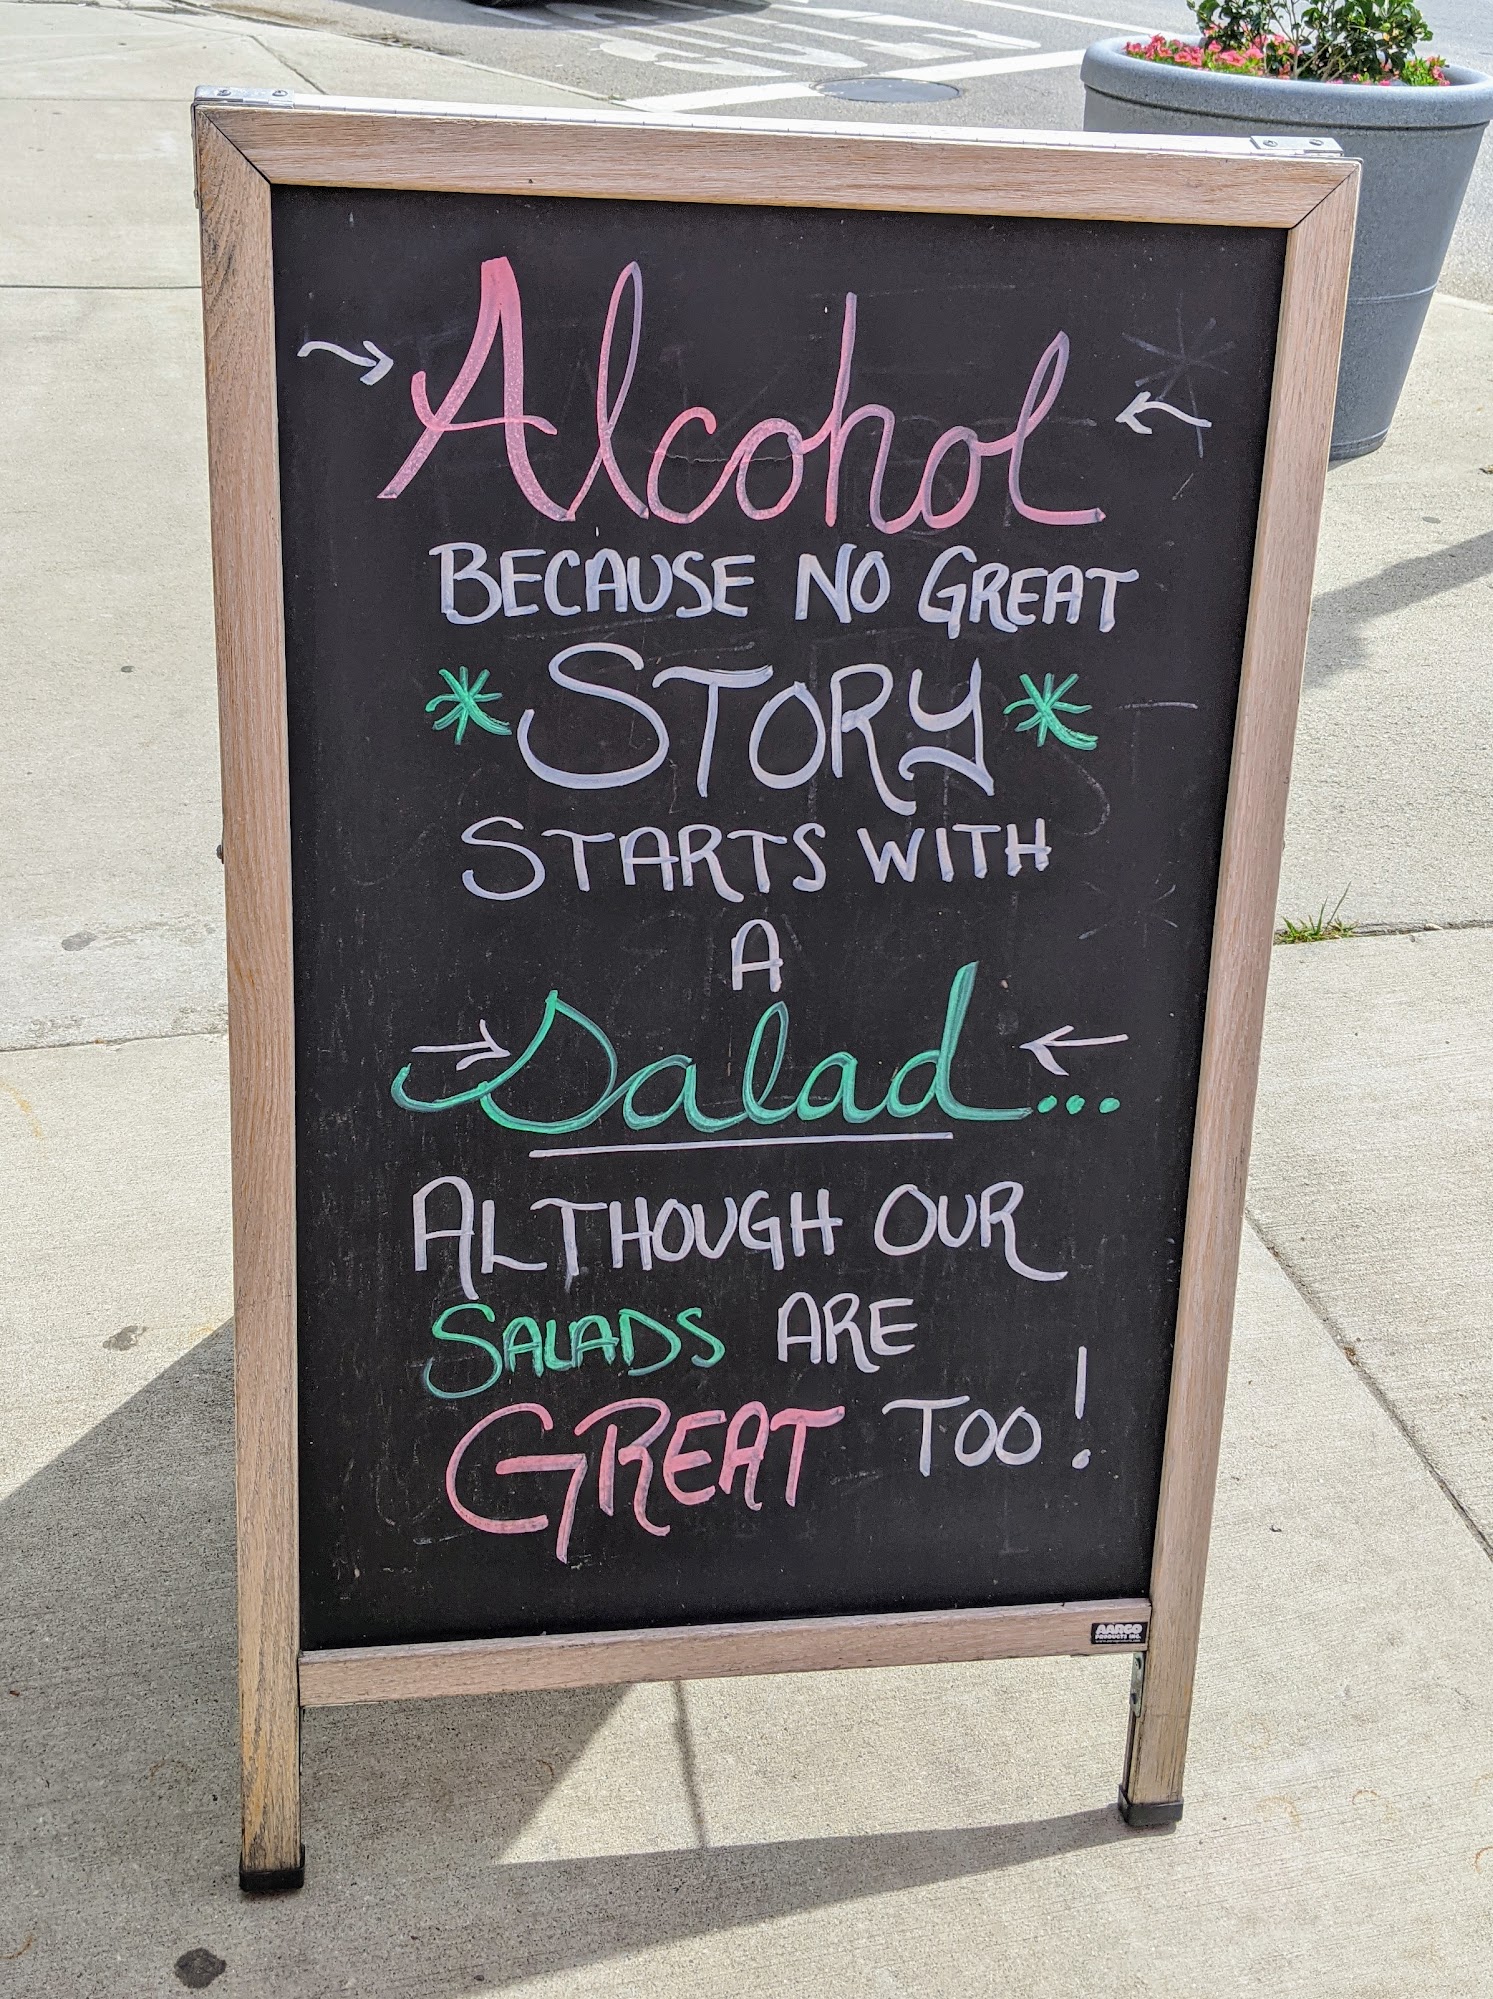 Alcohol
BECAUSE NO GREAT
*STORY*
STARTS WITH
A
Salad...
ALTHOUGH OUR
SALADS ARE
GREAT TOO!
AARCO
PRODUCTS INC.